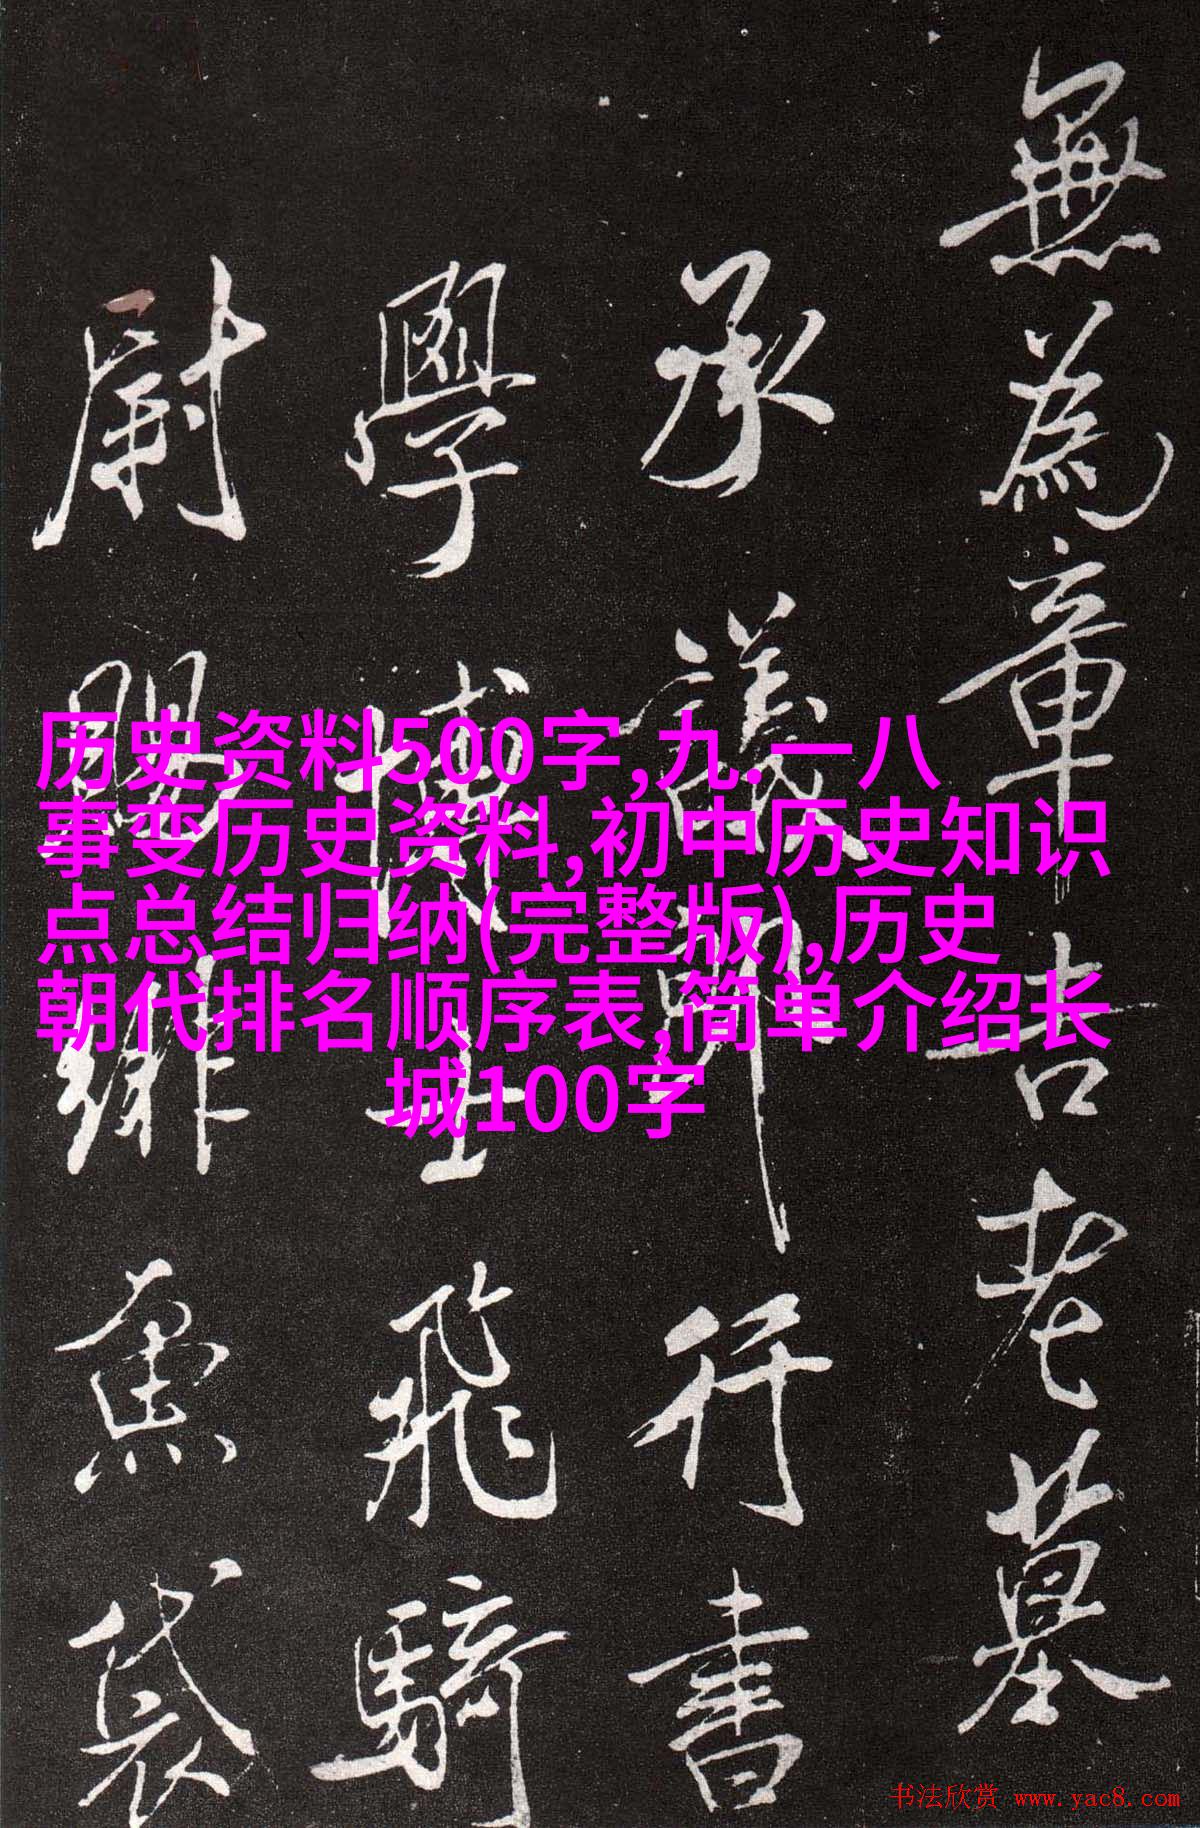 無為章吉老墓
承議郎行書
學博士飛騎
尉賜緋魚袋
历史资料500字,九.一八
事变历史资料,初中历史知识
点总结归纳(完整版),历史
朝代排名顺序表,简单介绍长
城100字
书法欣赏 www.yac8.com